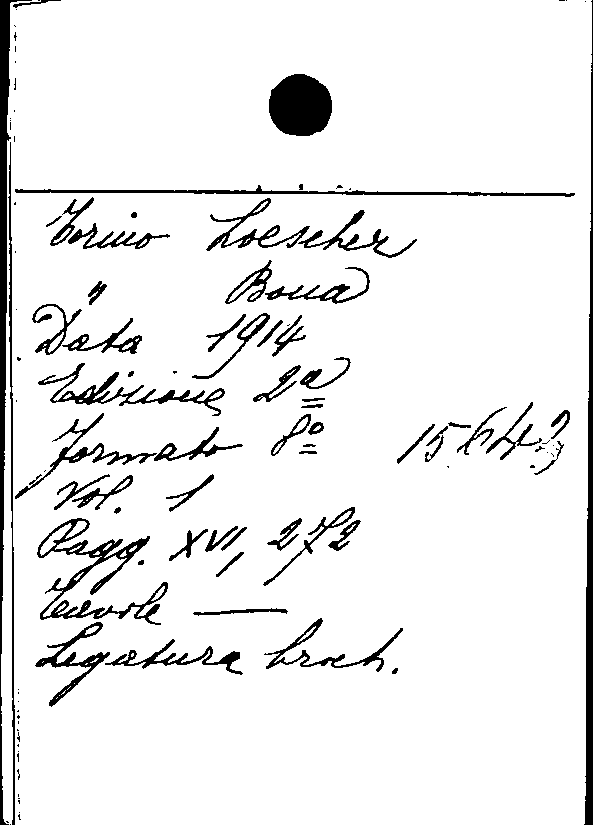 Torino Loescher
" Bona
Data 1914
Edizione 2ª
Formato 8º 15643
Vol. 1
Pagg. XVI, 272
Tavole —
Legatura broch.